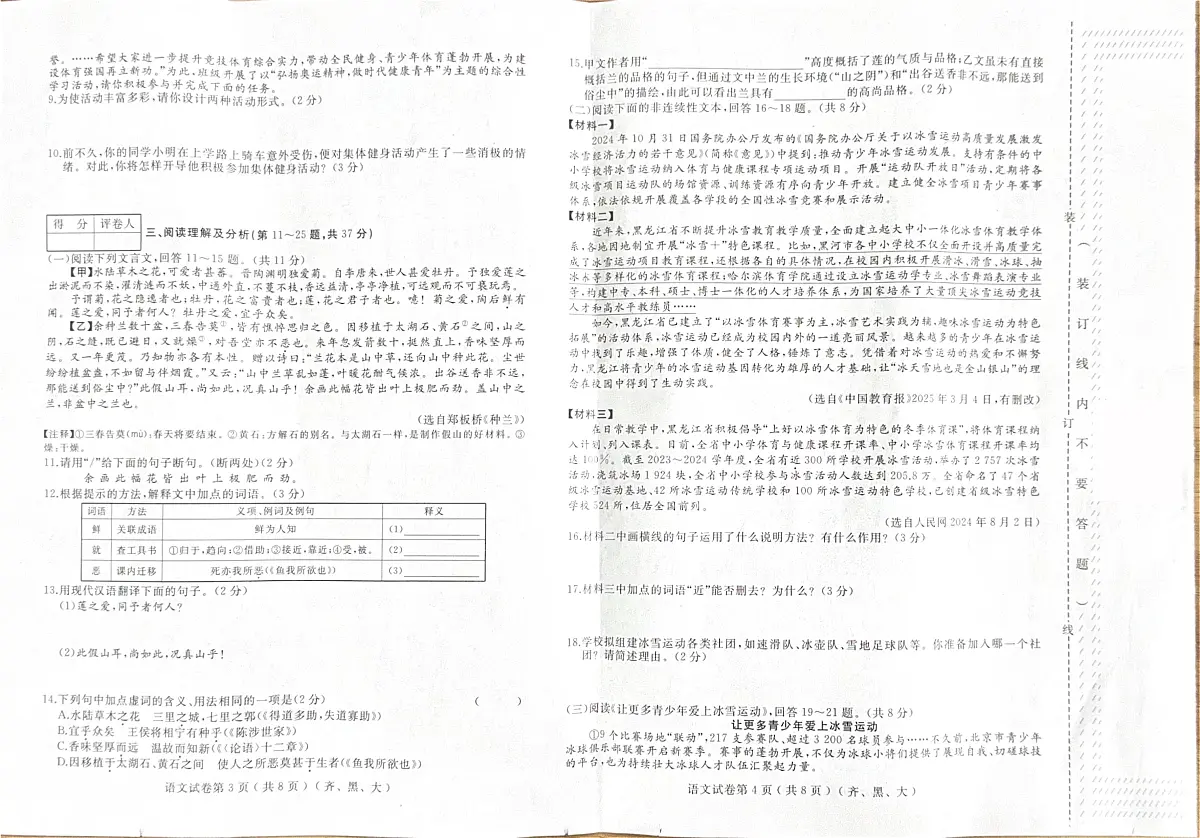 誉。……希望大家进一步提升竞技体育综合实力,带动全民健身、青少年体育蓬勃开展,为建
设体育强国再立新功。”为此,班级开展了以“弘扬奥运精神,做时代健康青年”为主题的综合性
学习活动,请你积极参与并完成下面的任务。
9.为使活动丰富多彩,请你设计两种活动形式。(2分)
10.前不久,你的同学小明在上学路上骑车意外受伤,便对集体健身活动产生了一些消极的情
绪。对此,你将怎样开导他积极参加集体健身活动?(3分)
得 分 评卷人
三、阅读理解及分析(第11~25题,共37分)
(一)阅读下列文言文,回答11~15题。(共11分)
【甲】水陆草木之花,可爱者甚蕃。晋陶渊明独爱菊。自李唐来,世人甚爱牡丹。予独爱莲之
出淤泥而不染,濯清涟而不妖,中通外直,不蔓不枝,香远益清,亭亭净植,可远观而不可亵玩焉。
予谓菊,花之隐逸者也;牡丹,花之富贵者也;莲,花之君子者也。噫!菊之爱,陶后鲜有
闻。莲之爱,同予者何人?牡丹之爱,宜乎众矣。
【乙】余种兰数十盆,三春告莫①,皆有憔悴思归之色。因移植于太湖石、黄石②之间,山之
阴,石之缝,既已避日,又就燥③,对吾堂亦不恶也。来年忽发箭数十,挺然直上,香味坚厚而
远。又一年更茂。乃知物亦各有本性。赠以诗曰:“兰花本是山中草,还向山中种此花。尘世
纷纷植盆盎,不如留与伴烟霞。”又云:“山中兰草乱如蓬,叶暖花酣气候浓。出谷送香非不远,
那能送到俗尘中?”此假山耳,尚如此,况真山乎!余画此幅花皆出叶上极肥而劲。盖山中之
兰,非盆中之兰也。
(选自郑板桥《种兰》)
【注释】①三春告莫(mù):春天将要结束。②黄石:方解石的别名。与太湖石一样,是制作假山的好材料。③
燥:干燥。
11.请用“/”给下面的句子断句。(断两处)(2分)
余画此幅花皆出叶上极肥而劲。
12.根据提示的方法,解释文中加点的词语。(3分)
词语 方法 义项、例词及例句 释义
鲜 关联成语 鲜为人知 (1)
就 查工具书 ①归于,趋向;②借助;③接近,靠近;④受,被。 (2)
恶 课内迁移 死亦我所恶(《鱼我所欲也》) (3)
13.用现代汉语翻译下面的句子。(2分)
(1)莲之爱,同予者何人?
(2)此假山耳,尚如此,况真山乎!
14.下列句中加点虚词的含义、用法相同的一项是(2分) ( )
A.水陆草木之花 三里之城,七里之郭(《得道多助,失道寡助》)
B.宜乎众矣 王侯将相宁有种乎(《陈涉世家》)
C.香味坚厚而远 温故而知新(《〈论语〉十二章》)
D.因移植于太湖石、黄石之间 使人之所恶莫甚于生者(《鱼我所欲也》)
语文试卷第3页(共8页)(齐、黑、大)
15.甲文作者用“ ”高度概括了莲的气质与品格;乙文虽未有直接
概括兰的品格的句子,但通过文中兰的生长环境(“山之阴”)和“出谷送香非不远,那能送到
俗尘中”的描绘,由此可以看出兰具有 的高尚品格。(2分)
(二)阅读下面的非连续性文本,回答16~18题。(共8分)
【材料一】
2024年10月31日国务院办公厅发布的《国务院办公厅关于以冰雪运动高质量发展激发
冰雪经济活力的若干意见》(简称《意见》)中提到:推动青少年冰雪运动发展。支持有条件的中
小学校将冰雪运动纳入体育与健康课程专项运动项目。开展“运动队开放日”活动,定期将各
级冰雪项目运动队的场馆资源、训练资源有序向青少年开放。建立健全冰雪项目青少年赛事
体系,依法依规开展覆盖各学段的全国性冰雪竞赛和展示活动。
【材料二】
近年来,黑龙江省不断提升冰雪教育教学质量,全面建立起大中小一体化冰雪体育教学体
系,各地因地制宜开展“冰雪+”特色课程。比如,黑河市各中小学校不仅全面开设并高质量完
成了冰雪运动项目教育课程,还根据各自的具体情况,在校园内积极开展滑冰、滑雪、冰球、抽
冰尜等多样化的冰雪体育课程;哈尔滨体育学院通过设立冰雪运动学专业、冰雪舞蹈表演专业
等,构建中专、本科、硕士、博士一体化的人才培养体系,为国家培养了大量顶尖冰雪运动竞技
人才和高水平教练员……
如今,黑龙江省已建立了“以冰雪体育赛事为主,冰雪艺术实践为辅,趣味冰雪运动为特色
拓展”的活动体系,冰雪运动已经成为校园内外的一道亮丽风景。越来越多的青少年在冰雪运
动中找到了乐趣,增强了体质,健全了人格,锤炼了意志。凭借着对冰雪运动的热爱和不懈努
力,黑龙江将青少年的冰雪运动基因转化为雄厚的人才基础,让“冰天雪地也是金山银山”的理
念在校园中得到了生动实践。
(选自《中国教育报》2025年3月4日,有删改)
【材料三】
在日常教学中,黑龙江省积极倡导“上好以冰雪体育为特色的冬季体育课”,将体育课程纳
入计划、列入课表。目前,全省中小学体育与健康课程开课率、中小学冰雪体育课程开课率均
达100%。截至2023~2024学年度,全省有近300所学校开展冰雪活动,举办了2 757次冰雪
活动,浇筑冰场1 924块,全省中小学校参与冰雪活动人数达到205.8万。全省命名了47个省
级冰雪运动基地、42所冰雪运动传统学校和100所冰雪运动特色学校,已创建省级冰雪特色
学校524所,位居全国前列。
(选自人民网2024年8月2日)
16.材料二中画横线的句子运用了什么说明方法?有什么作用?(3分)
17.材料三中加点的词语“近”能否删去?为什么?(3分)
18.学校拟组建冰雪运动各类社团,如速滑队、冰壶队、雪地足球队等。你准备加入哪一个社
团?请简述理由。(2分)
(三)阅读《让更多青少年爱上冰雪运动》,回答19~21题。(共8分)
让更多青少年爱上冰雪运动
①9个比赛场地“联动”,217支参赛队、超过3 200名球员参与……不久前,北京市青少年
冰球俱乐部联赛开启新赛季。赛事的蓬勃开展,不仅为冰球小将们提供了展现自我、切磋球技
的平台,也为持续壮大冰球人才队伍汇聚起力量。
语文试卷第4页(共8页)(齐、黑、大)
装
订
线
(
装
订
线
内
不
要
答
题
)